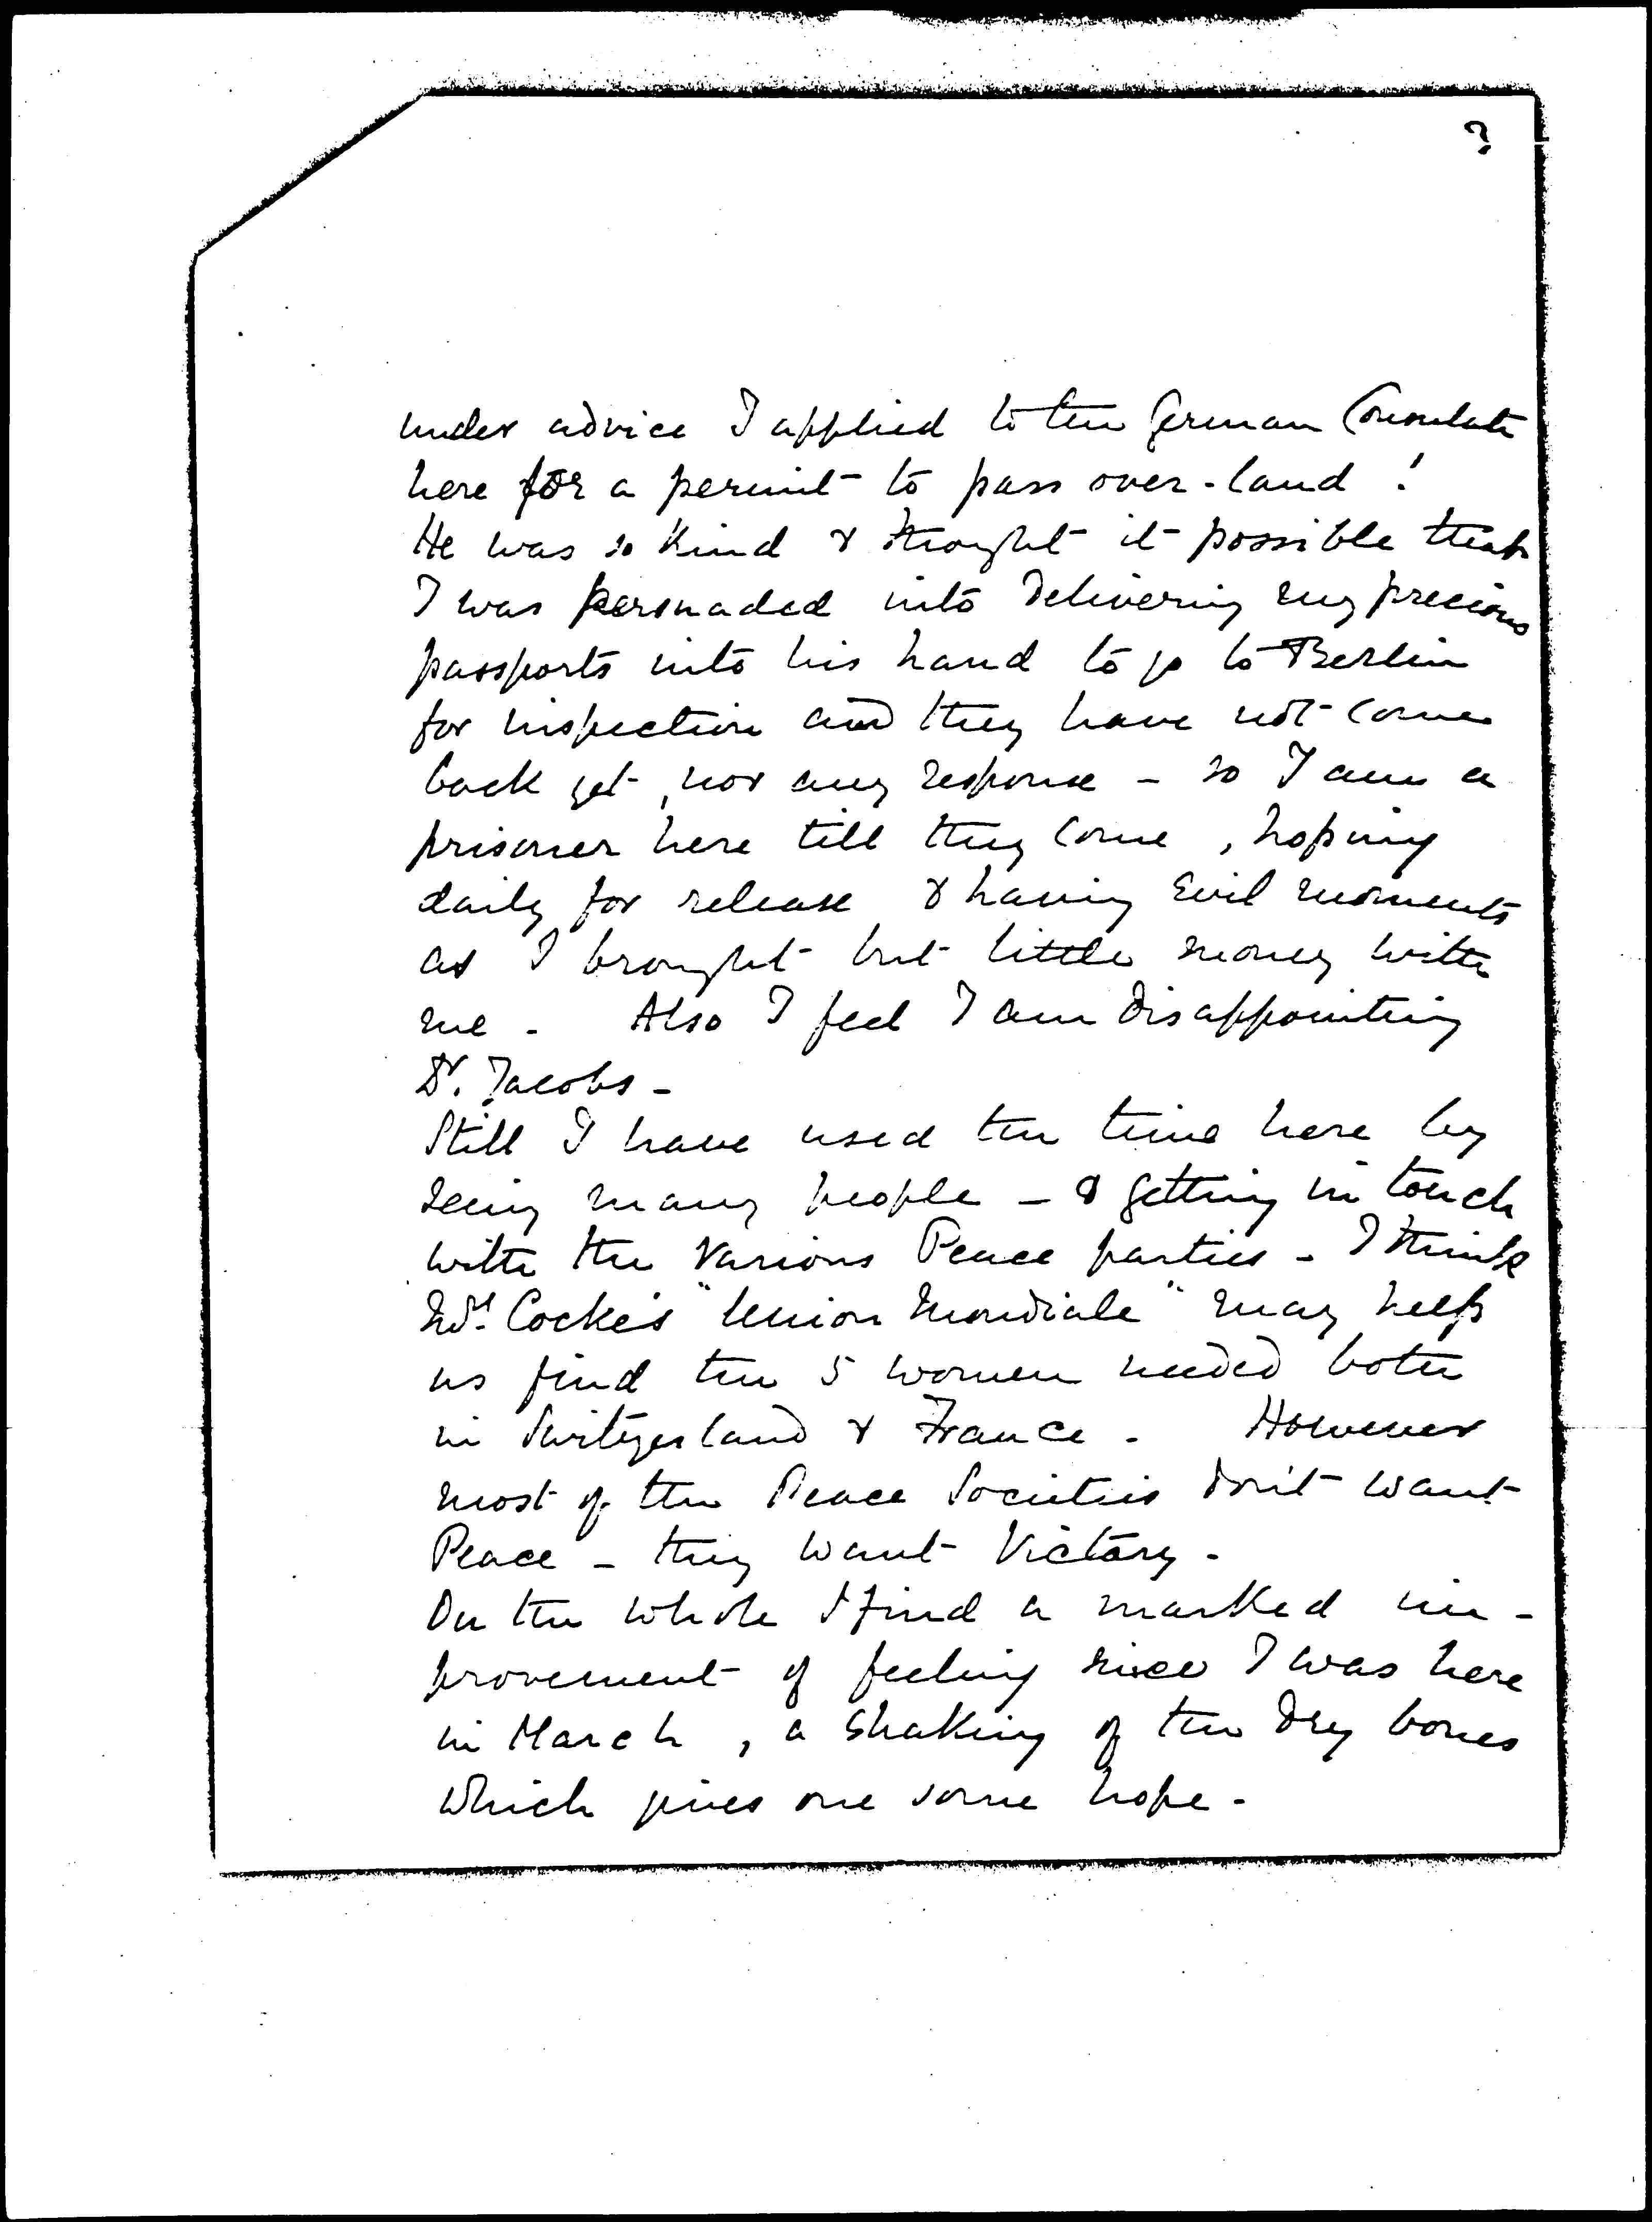 ?
under advice I applied to the German Consulate
here for a permit to pass over-land !
He was so kind & thought it possible that
I was persuaded into delivering my precious
passports into his hand to go to Berlin
for inspection and they have not come
back yet, nor any response - so I am a
prisoner here till they come, hoping
daily for release & having evil moments
as I brought but little money with
me - Also I feel I am disappointing
Dr. Jacobs -
Still I have used the time here by
seeing many people - & getting in touch
with the various Peace parties - I think
Md. Cocke's "Union Mondiale" may help
us find the 5 women needed both
in Switzerland & France. However
most of the Peace Societies don't want
Peace - they want Victory.
On the whole I find a marked im-
provement of feeling since I was here
in March, a shaking of the dry bones
which gives one some hope.